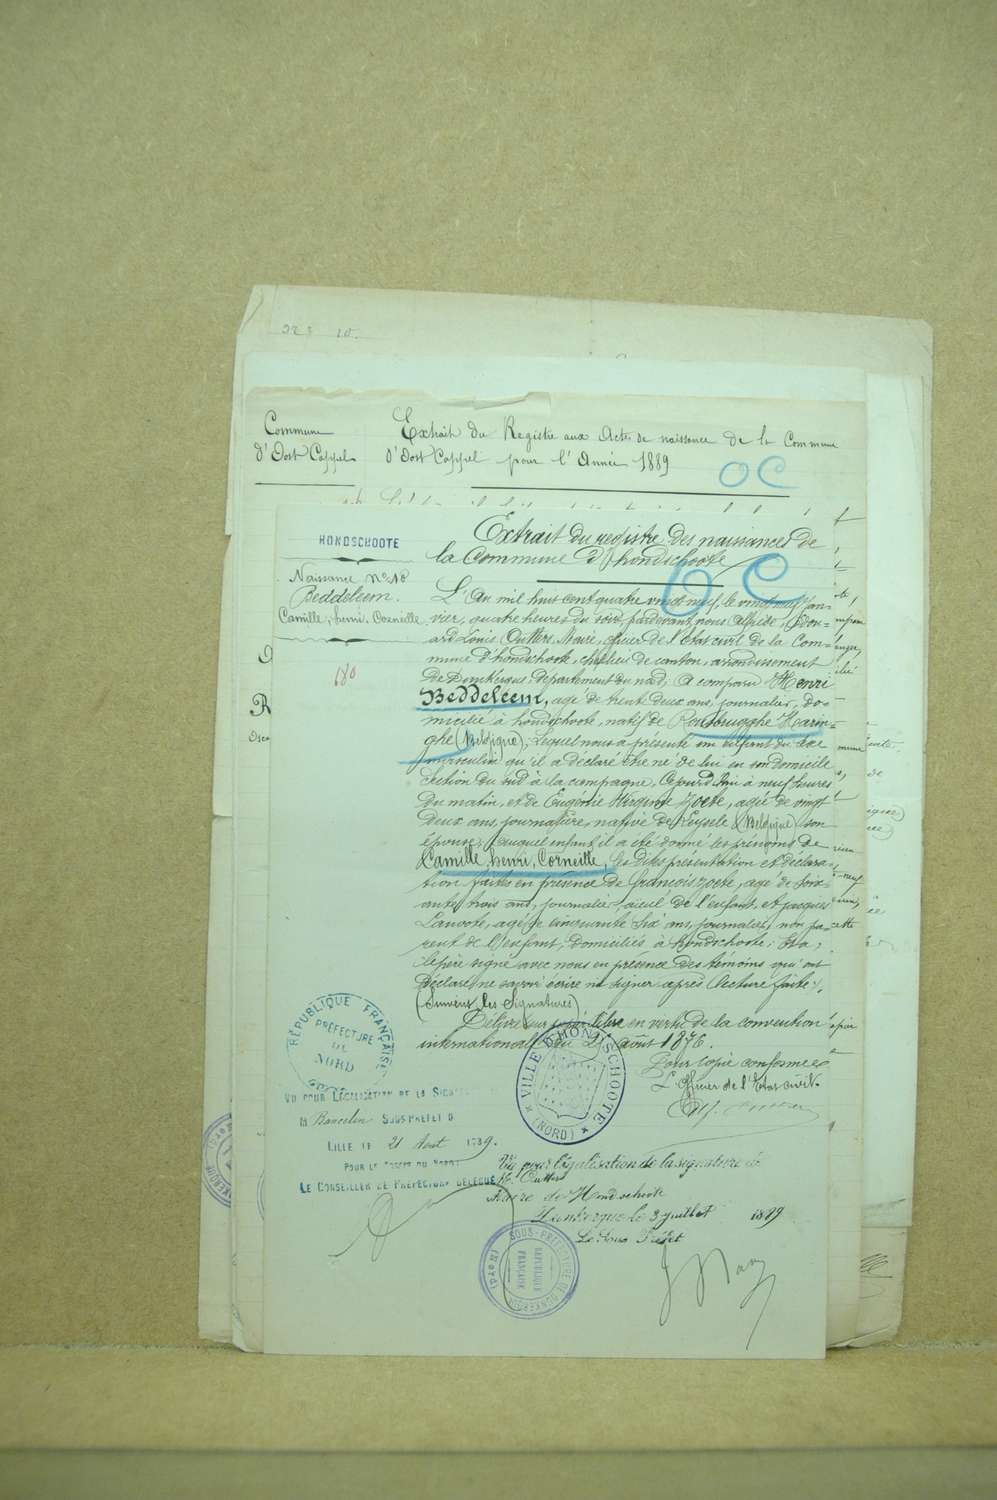 Commune
d'Oost Cappel
Extrait du Registre aux Actes de naissance de la Commune
d'Oost Cappel pour l'Année 1889
OC
HONDSCHOOTE
Naissance N° 10
Beddeleem.
Camille, henri, Corneille
180
Extrait du registre des naissances de
la Commune d'hondschoote
OC
L'An mil huit cent quatre vingt neuf, le vingt neuf Jan-
vier, quatre heures du soir pardevant nous Alfide, Edou-
ard Louis Outters, Maire, officier de l'état civil de la Com-
mune d'hondschoote, chef lieu de canton, arrondissement
de Dunkerque, département du nord, a comparu Henri
Beddeleem, agé de trent deux ans, journalier, do-
micilié à hondschoote, natif de Rousbrugghe Harin-
ghe (Belgique), Lequel nous a présenté un enfant du sexe
masculin qu'il a déclaré être né de lui en son domicile
section du sud à la campagne, Cejourd'hui à neuf heures
du matin, et de Eugénie Virginie Zoete, agée de vingt
deux ans, journalière, native de Leysele (Belgique) son
épouse, auquel enfant il a été donné les prénoms de
Camille, henri, Corneille, les dites présentation et déclara-
tion faites en présence de françois Zoete, agé de soix-
ante trois ans, journalier aieul de l'enfant, et jacques
agé de cinquante six ans, journalier, non pa-
rent de l'enfant, domiciliés à hondschoote; Et a,
le père signé avec nous en présence des témoins qui ont
déclaré ne savoir écrire ni signer après lecture faite,
(Suivent les Signatures)
Délivré sur papier libre en vertu de la convention
internationale du août 1876.
Pour copie conforme
L'officier de l'Etat civil.
RÉPUBLIQUE FRANÇAISE
PRÉFECTURE
DU
NORD
VU POUR LÉGALISATION DE LA SIGNATURE
M Bancelin SOUS PRÉFET D
LILLE LE 21 Aout 1889.
POUR LE PRÉFET DU NORD
LE CONSEILLER DE PRÉFECTURE DÉLÉGUÉ
VILLE D'HONDSCHOOTE
(NORD)
Vu pour légalisation de la signature de
M. Outters
Maire de Hondschoote
Dunkerque le 3 juillet 1889
Le Sous Préfet
SOUS-PRÉFECTURE DE DUNKERQUE
(NORD)
RÉPUBLIQUE
FRANÇAISE